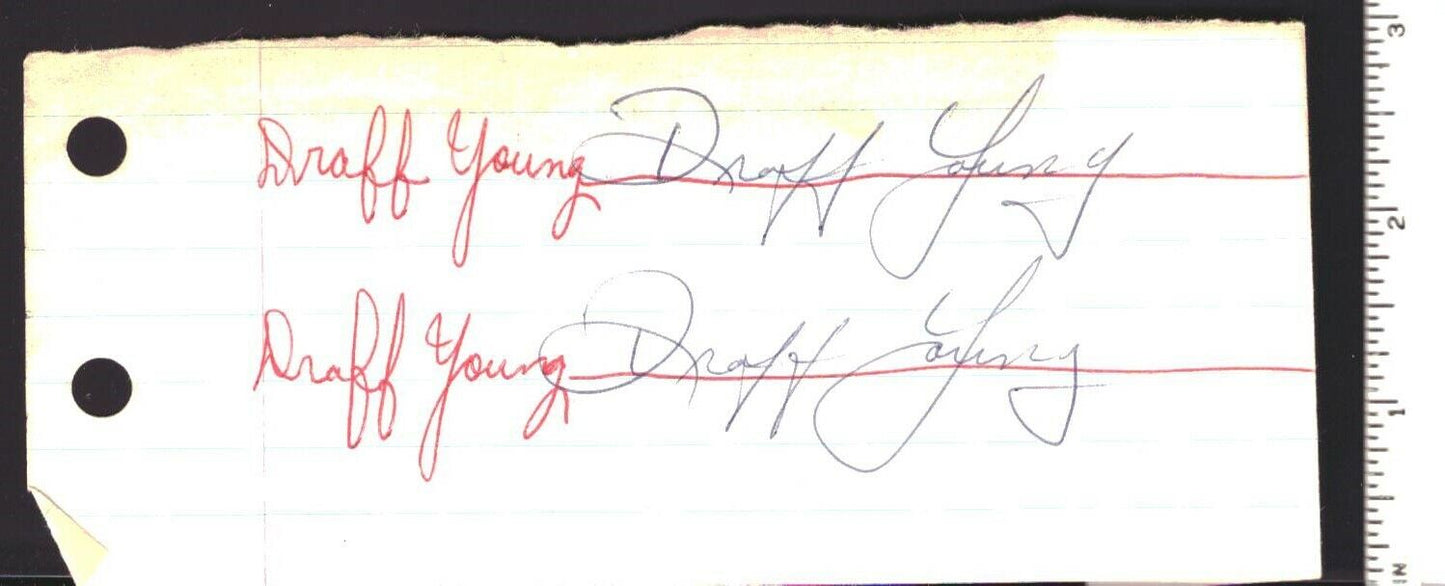 Draff Young Draff Young
Draff Young Draff Young
3
2
1
IN